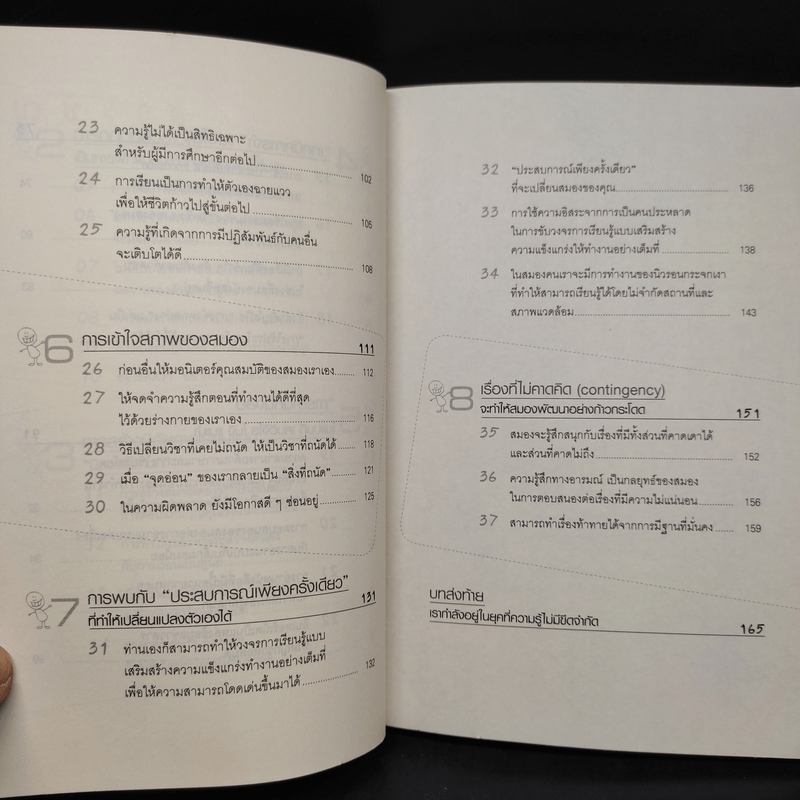 23 ความรู้ไม่ได้เป็นสิทธิเฉพาะ
สำหรับผู้มีการศึกษาอีกต่อไป 102
24 การเรียนเป็นการทำให้ตัวเองฉายแวว
เพื่อให้ชีวิตก้าวไปสู่ขั้นต่อไป 105
25 ความรู้ที่เกิดจากการมีปฏิสัมพันธ์กับคนอื่น
จะเติบโตได้ดี 108
6 การเข้าใจสภาพของสมอง 111
26 ก่อนอื่นให้มอนิเตอร์คุณสมบัติของสมองเราเอง 112
27 ให้จดจำความรู้สึกตอนที่ทำงานได้ดีที่สุด
ไว้ด้วยร่างกายของเราเอง 116
28 วิธีเปลี่ยนวิชาที่เคยไม่ถนัด ให้เป็นวิชาที่ถนัดได้ 118
29 เมื่อ "จุดอ่อน" ของเรากลายเป็น "สิ่งที่ถนัด" 121
30 ในความผิดพลาด ยังมีโอกาสดี ๆ ซ่อนอยู่ 125
7 การพบกับ "ประสบการณ์เพียงครั้งเดียว" 131
ที่ทำให้เปลี่ยนแปลงตัวเองได้
31 ท่านเองก็สามารถทำให้วงจรการเรียนรู้แบบ
เสริมสร้างความแข็งแกร่งทำงานอย่างเต็มที่
เพื่อให้ความสามารถโดดเด่นขึ้นมาได้ 132
32 "ประสบการณ์เพียงครั้งเดียว"
ที่จะเปลี่ยนสมองของคุณ 136
33 การใช้ความอิสระจากการเป็นคนประหลาด
ในการขับวงจรการเรียนรู้แบบเสริมสร้าง
ความแข็งแกร่งให้ทำงานอย่างเต็มที่ 138
34 ในสมองคนเราจะมีการทำงานของนิวรอนกระจกเงา
ที่ทำให้สามารถเรียนรู้ได้โดยไม่จำกัดสถานที่และ
สภาพแวดล้อม 143
8 เรื่องที่ไม่คาดคิด (contingency)
จะทำให้สมองพัฒนาอย่างก้าวกระโดด 151
35 สมองจะรู้สึกสนุกกับเรื่องที่มีทั้งส่วนที่คาดเดาได้
และส่วนที่คาดไม่ถึง 152
36 ความรู้สึกทางอารมณ์ เป็นกลยุทธ์ของสมอง
ในการตอบสนองต่อเรื่องที่มีความไม่แน่นอน 156
37 สามารถทำเรื่องท้าทายได้จากการมีฐานที่มั่นคง 159
บทส่งท้าย
เรากำลังอยู่ในยุคที่ความรู้ไม่มีขีดจำกัด 165